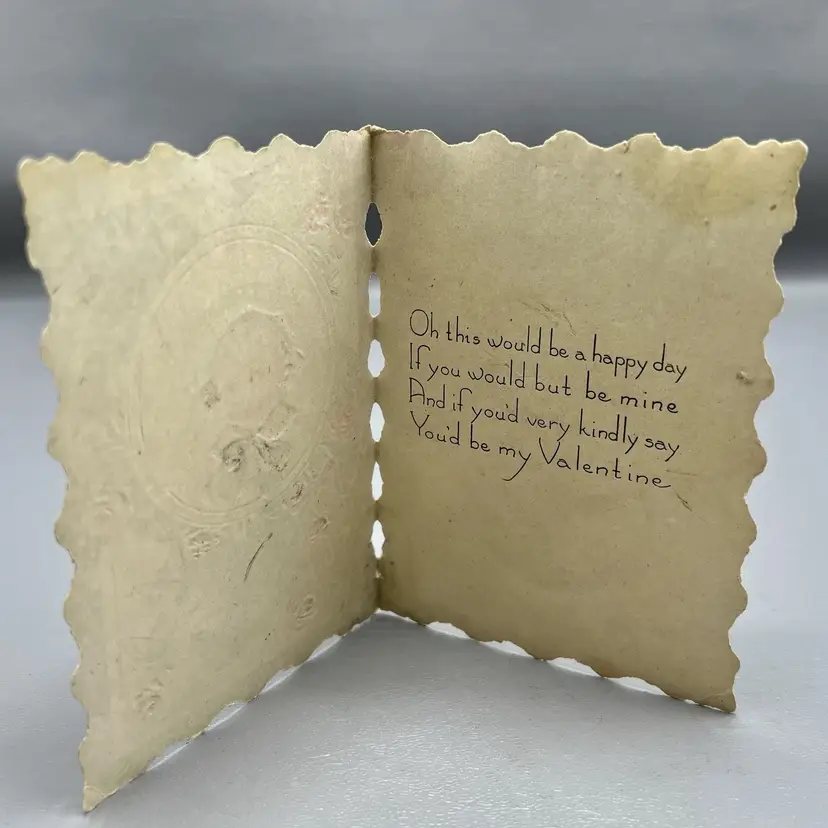 Oh this would be a happy day
If you would but be mine
And if you'd very kindly say
You'd be my Valentine